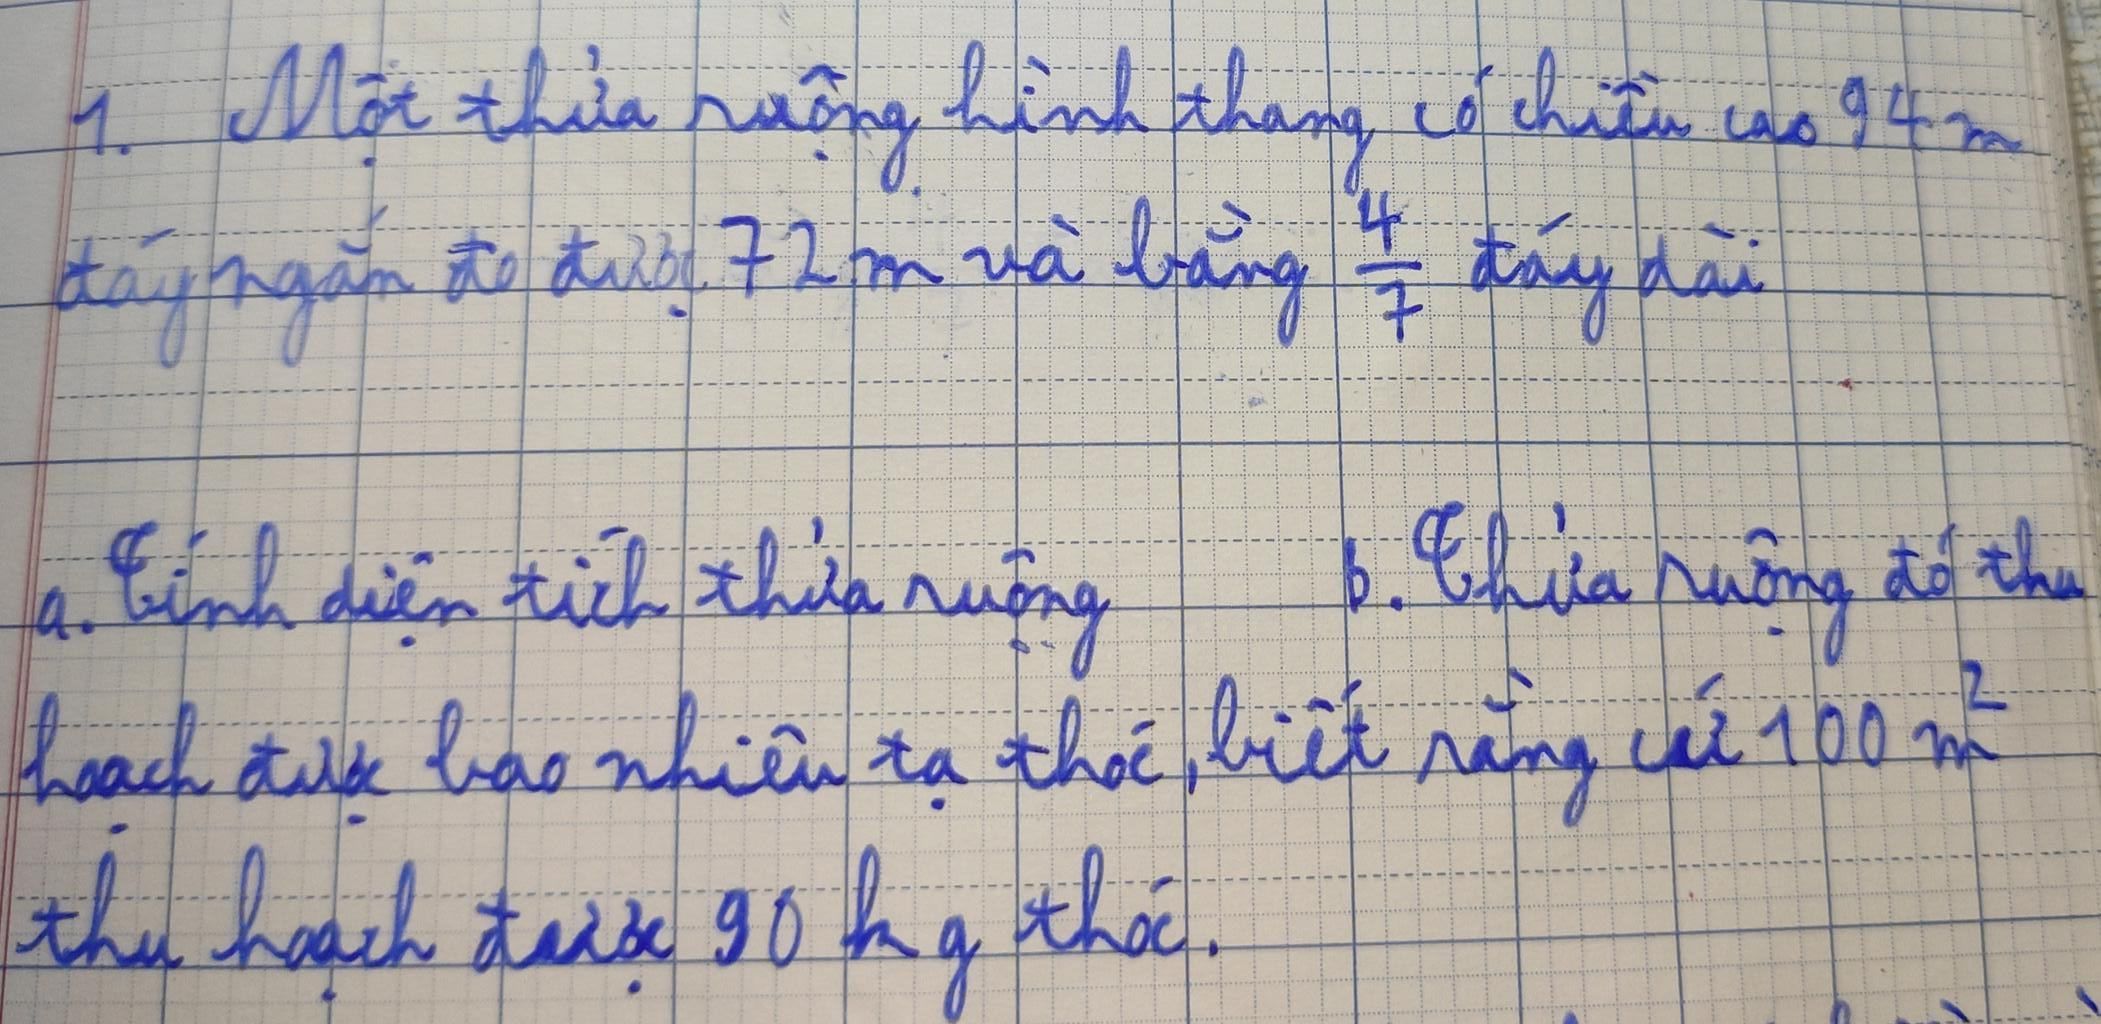 1. Một thửa ruộng hình thang có chiều cao 94 m
đáy ngắn đo được 72 m và bằng 4/7 đáy dài
a. Tính diện tích thửa ruộng b. Thửa ruộng đó thu
hoạch được bao nhiêu tạ thóc, biết rằng cứ 100 m²
thu hoạch được 90 kg thóc.